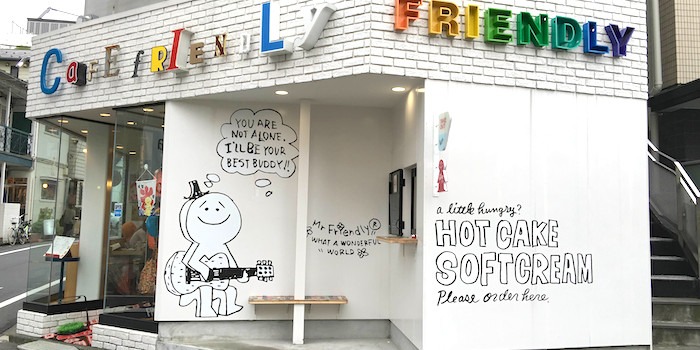 CaFE fRIEnDLy
FRIENDLY
YOU ARE
NOT ALONE.
I'LL BE YOUR
BEST BUDDY!!
Mr. Friendly
WHAT A WONDERFUL
WORLD
a little hungry?
HOT CAKE
SOFTCREAM
Please order here.